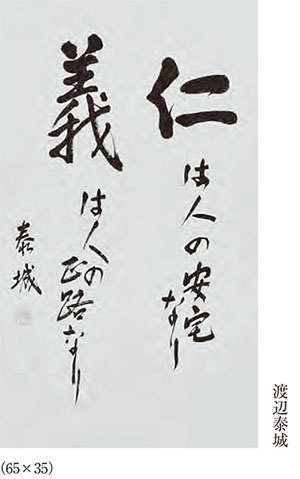 仁は人の安宅なり
義は人の正路なり
泰城
渡辺泰城
(65×35)